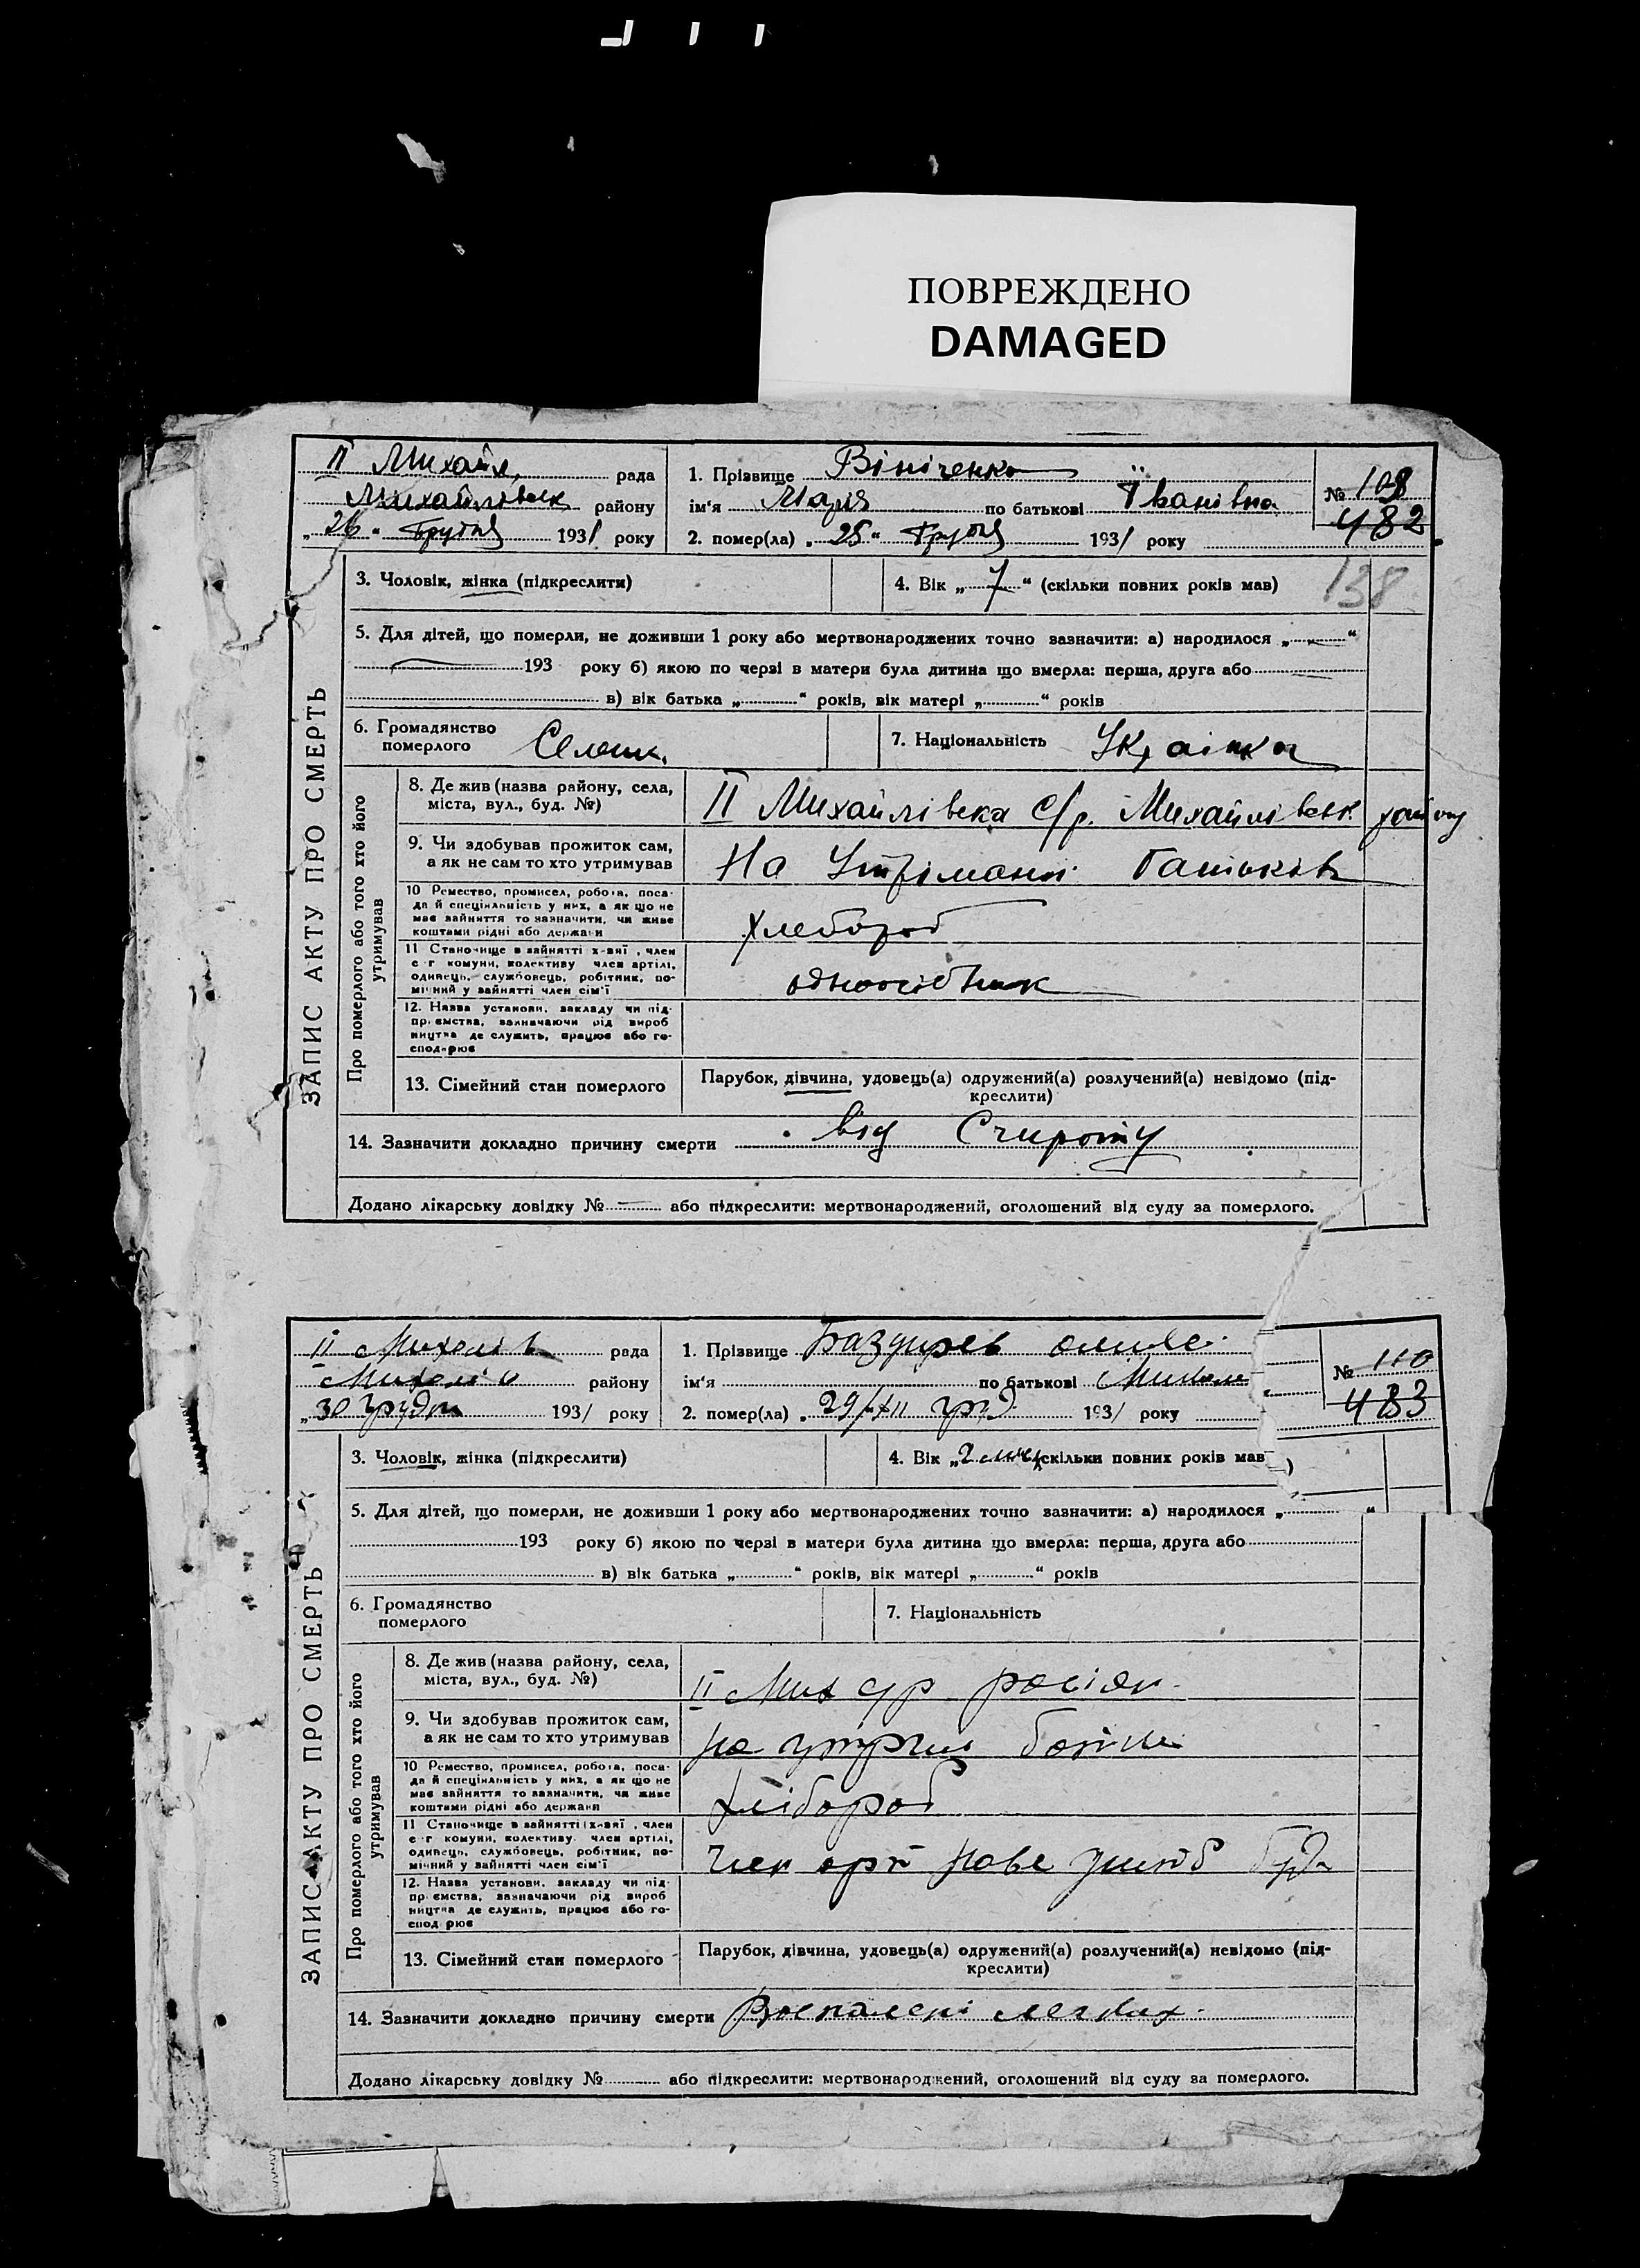 ПОВРЕЖДЕНО
DAMAGED
II Михайл. рада
Михайлівськ району
„26“ Грудня 1931 року
1. Прізвище Вініченко
ім'я Марія по батькові Іванівна
2. помер(ла) „25“ Грудня 1931 року
№ 108
482
138
ЗАПИС АКТУ ПРО СМЕРТЬ
3. Чоловік, жінка (підкреслити)
4. Вік „7“ (скільки повних років мав)
5. Для дітей, що померли, не доживши 1 року або мертвонароджених точно зазначити: а) народилося „ “
193 року б) якою по черзі в матери була дитина що вмерла: перша, друга або
в) вік батька „ “ років, вік матері „ “ років
6. Громадянство
померлого
7. Національність Українка
Про померлого або того хто його
утримував
8. Де жив (назва району, села,
міста, вул., буд. №)
II Михайлівска С/р. Михайлівськ району
9. Чи здобував прожиток сам,
а як не сам то хто утримував
На Утріманні батьків
10 Ремество, промисел, робота, поса-
да й спеціяльність у них, а як що не
має зайняття то зазначити, чи живе
коштами рідні або держави
хлебороб
11 Становище в зайнятті х-вяї, член
с-г комуни, колективу член артілі,
одинець, службовець, робітник, по-
мічний у зайнятті член сім'ї
односібник
12. Назва установи, закладу чи під-
приємства, зазначаючи рід вироб
ництва де служить, працює або го-
сподарює
13. Сімейний стан померлого
Парубок, дівчина, удовець(а) одружений(а) розлучений(а) невідомо (під-
креслити)
14. Зазначити докладно причину смерти від
Додано лікарську довідку № або підкреслити: мертвонароджений, оголошений від суду за померлого.
II Михайлів рада
району
„30 Грудн 1931 року
1. Прізвище
ім'я по батькові
2. помер(ла) „29/XII 1931 року
№ 110
483
ЗАПИС АКТУ ПРО СМЕРТЬ
3. Чоловік, жінка (підкреслити)
4. Вік „2 (скільки повних років мав )
5. Для дітей, що померли, не доживши 1 року або мертвонароджених точно зазначити: а) народилося „ “
193 року б) якою по черзі в матери була дитина що вмерла: перша, друга або
в) вік батька „ “ років, вік матері „ “ років
6. Громадянство
померлого
7. Національність
Про померлого або того хто його
утримував
8. Де жив (назва району, села,
міста, вул., буд. №)
II Мих с/р
9. Чи здобував прожиток сам,
а як не сам то хто утримував
на
10 Ремество, промисел, робота, поса-
да й спеціяльність у них, а як що не
має зайняття то зазначити, чи живе
коштами рідні або держави
хлібороб
11 Становище в зайнятті х-вяї, член
с-г комуни, колективу член артілі,
одинець, службовець, робітник, по-
мічний у зайнятті член сім'ї
член арт Нове
12. Назва установи, закладу чи під-
приємства, зазначаючи рід вироб
ництва де служить, працює або го-
сподарює
13. Сімейний стан померлого
Парубок, дівчина, удовець(а) одружений(а) розлучений(а) невідомо (під-
креслити)
14. Зазначити докладно причину смерти Воспалені легких
Додано лікарську довідку № або підкреслити: мертвонароджений, оголошений від суду за померлого.